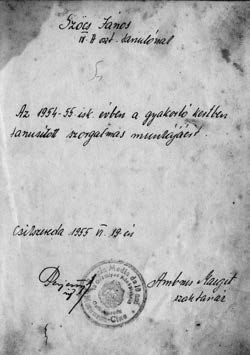 Szőcs János
IV. B oszt. tanulónak
Az 1954-55 isk. évben a gyakorló kertben
tanusított szorgalmas munkájáért.
Csikszereda 1955 VI. 19-én
Ambrus Margit
szaktanár